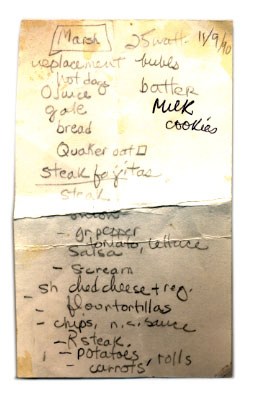 Marsh 25 watt 11/9/90
replacement bulbs
hot dogs batter
O juice MILK
gate cookies
bread
Quaker oat□
steak fajitas
steak
onion
- gr. pepper
tomato, lettuce
salsa
- s cream
- sh ched cheese + reg.
- flour tortillas
- chips, n.c. sauce
- R steak.
- potatoes, rolls
carrots